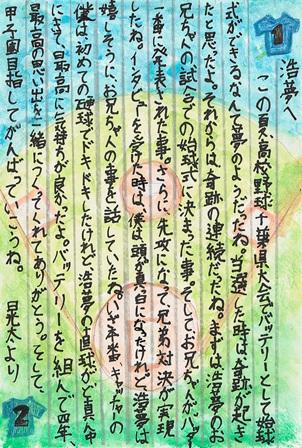 1
浩夢へ
この夏、高校野球千葉県大会でバッテリーとして始球
式ができるなんて夢のようだったね。当選した時は奇跡が起き
たと思ったよ。それからは奇跡の連続だったね。まずは浩夢のお
兄ちゃんの試合での始球式に決まった事。そしてお兄ちゃんがバッター
一番に発表された事。さらに、先攻になって兄弟対決が実現
したね。インタビューを受けた時は、僕は頭が真白になったけれど浩夢は
嬉しそうに、お兄ちゃんの事を話していたね。いざ本番、キャッチャーの
僕は初めての硬球でドキドキしたけれど浩夢の直球がど真ん中
にきて最高に気持ちが良かったよ。バッテリーを組んで四年、
最高の思い出を一緒につくってくれてありがとう。そして、
甲子園目指してがんばっていこうね。
晃太より
2